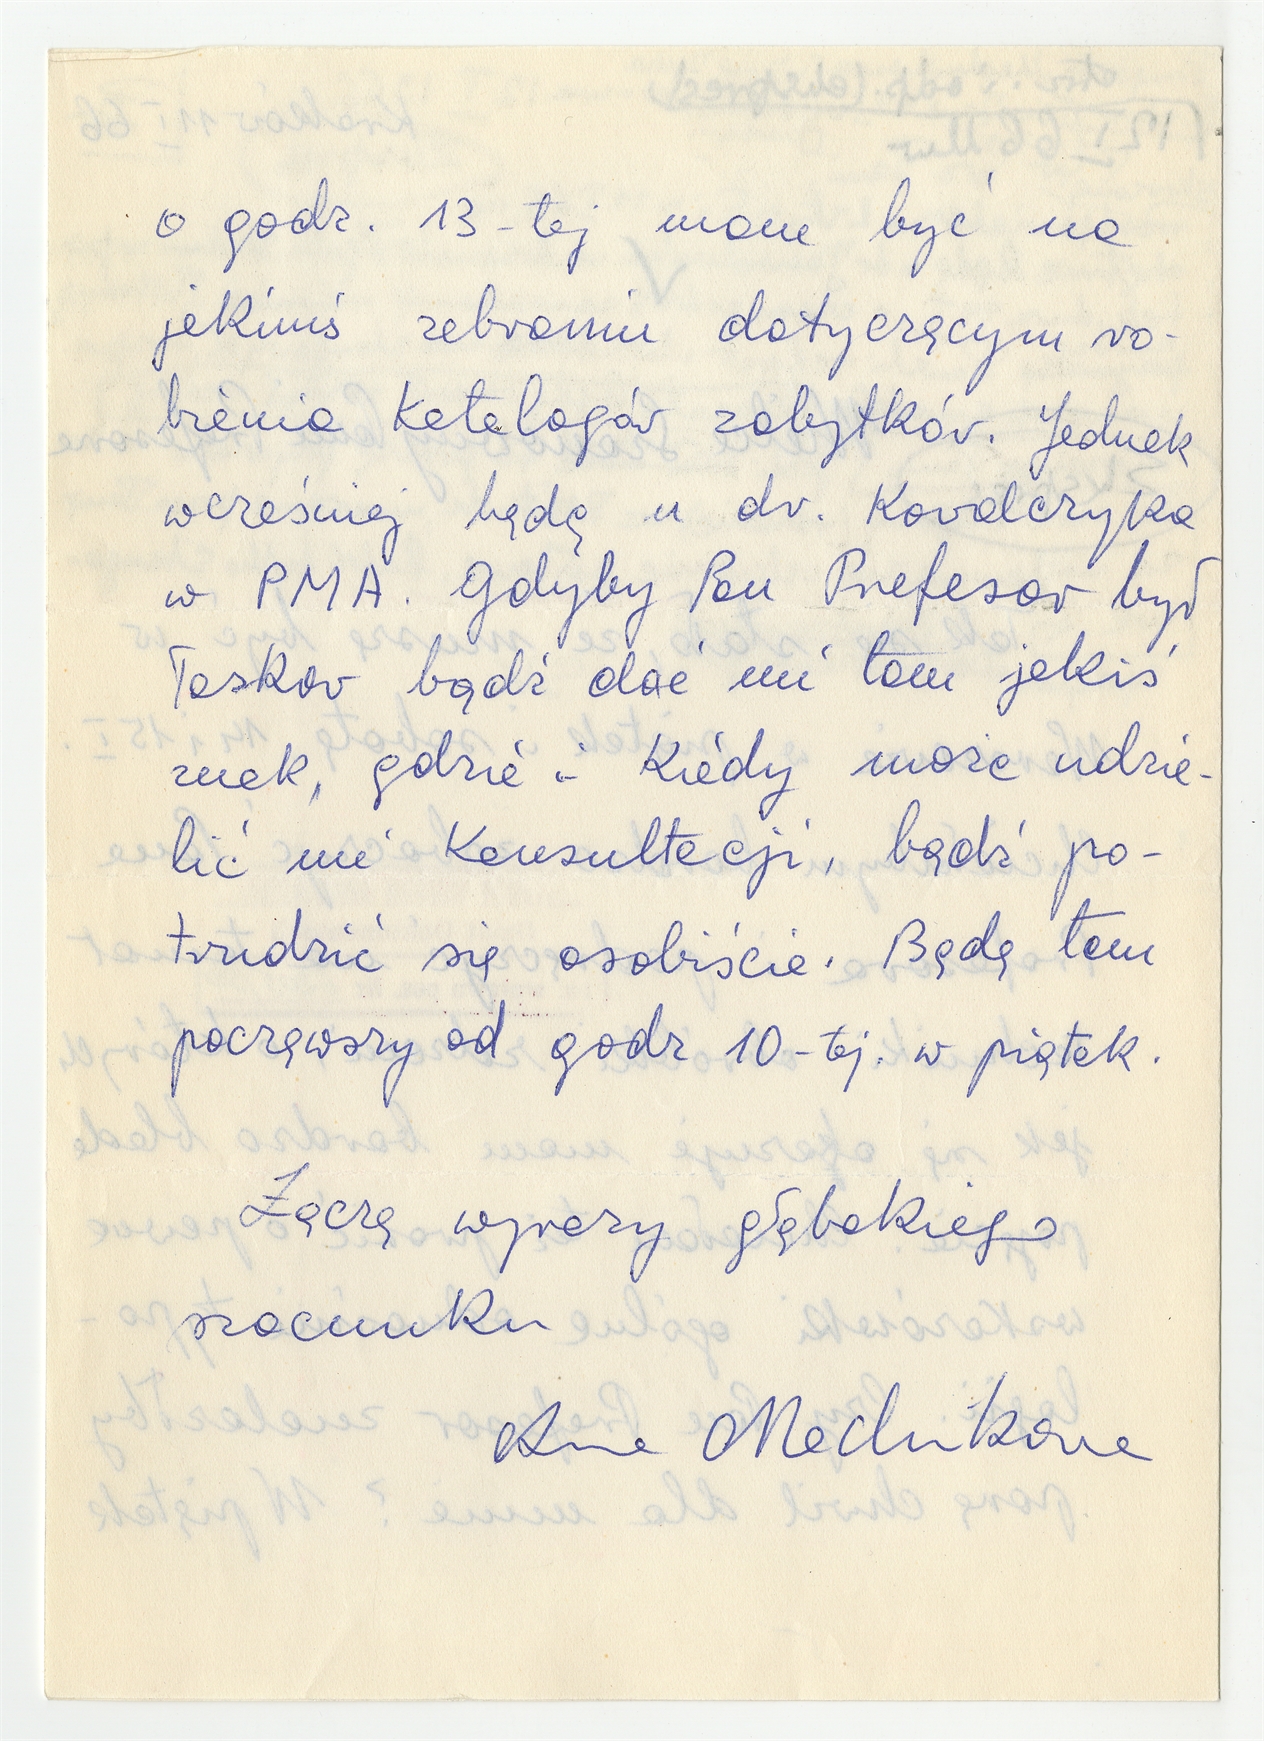 o godz. 13-tej mam być na
jakimś zebraniu dotyczącym ro-
bienia Katalogów zabytków. Jednak
wcześniej będę u dr. Kowalczyka
w PMA. Gdyby Pan Profesor był
łaskaw bądź dać mi tam jakiś
znak, gdzie i kiedy może udzie-
lić mi Konsultacji, bądź po-
trudzić się osobiście. Będę tam
począwszy od godz 10-tej. w piątek.
Łączę wyrazy głębokiego
szacunku